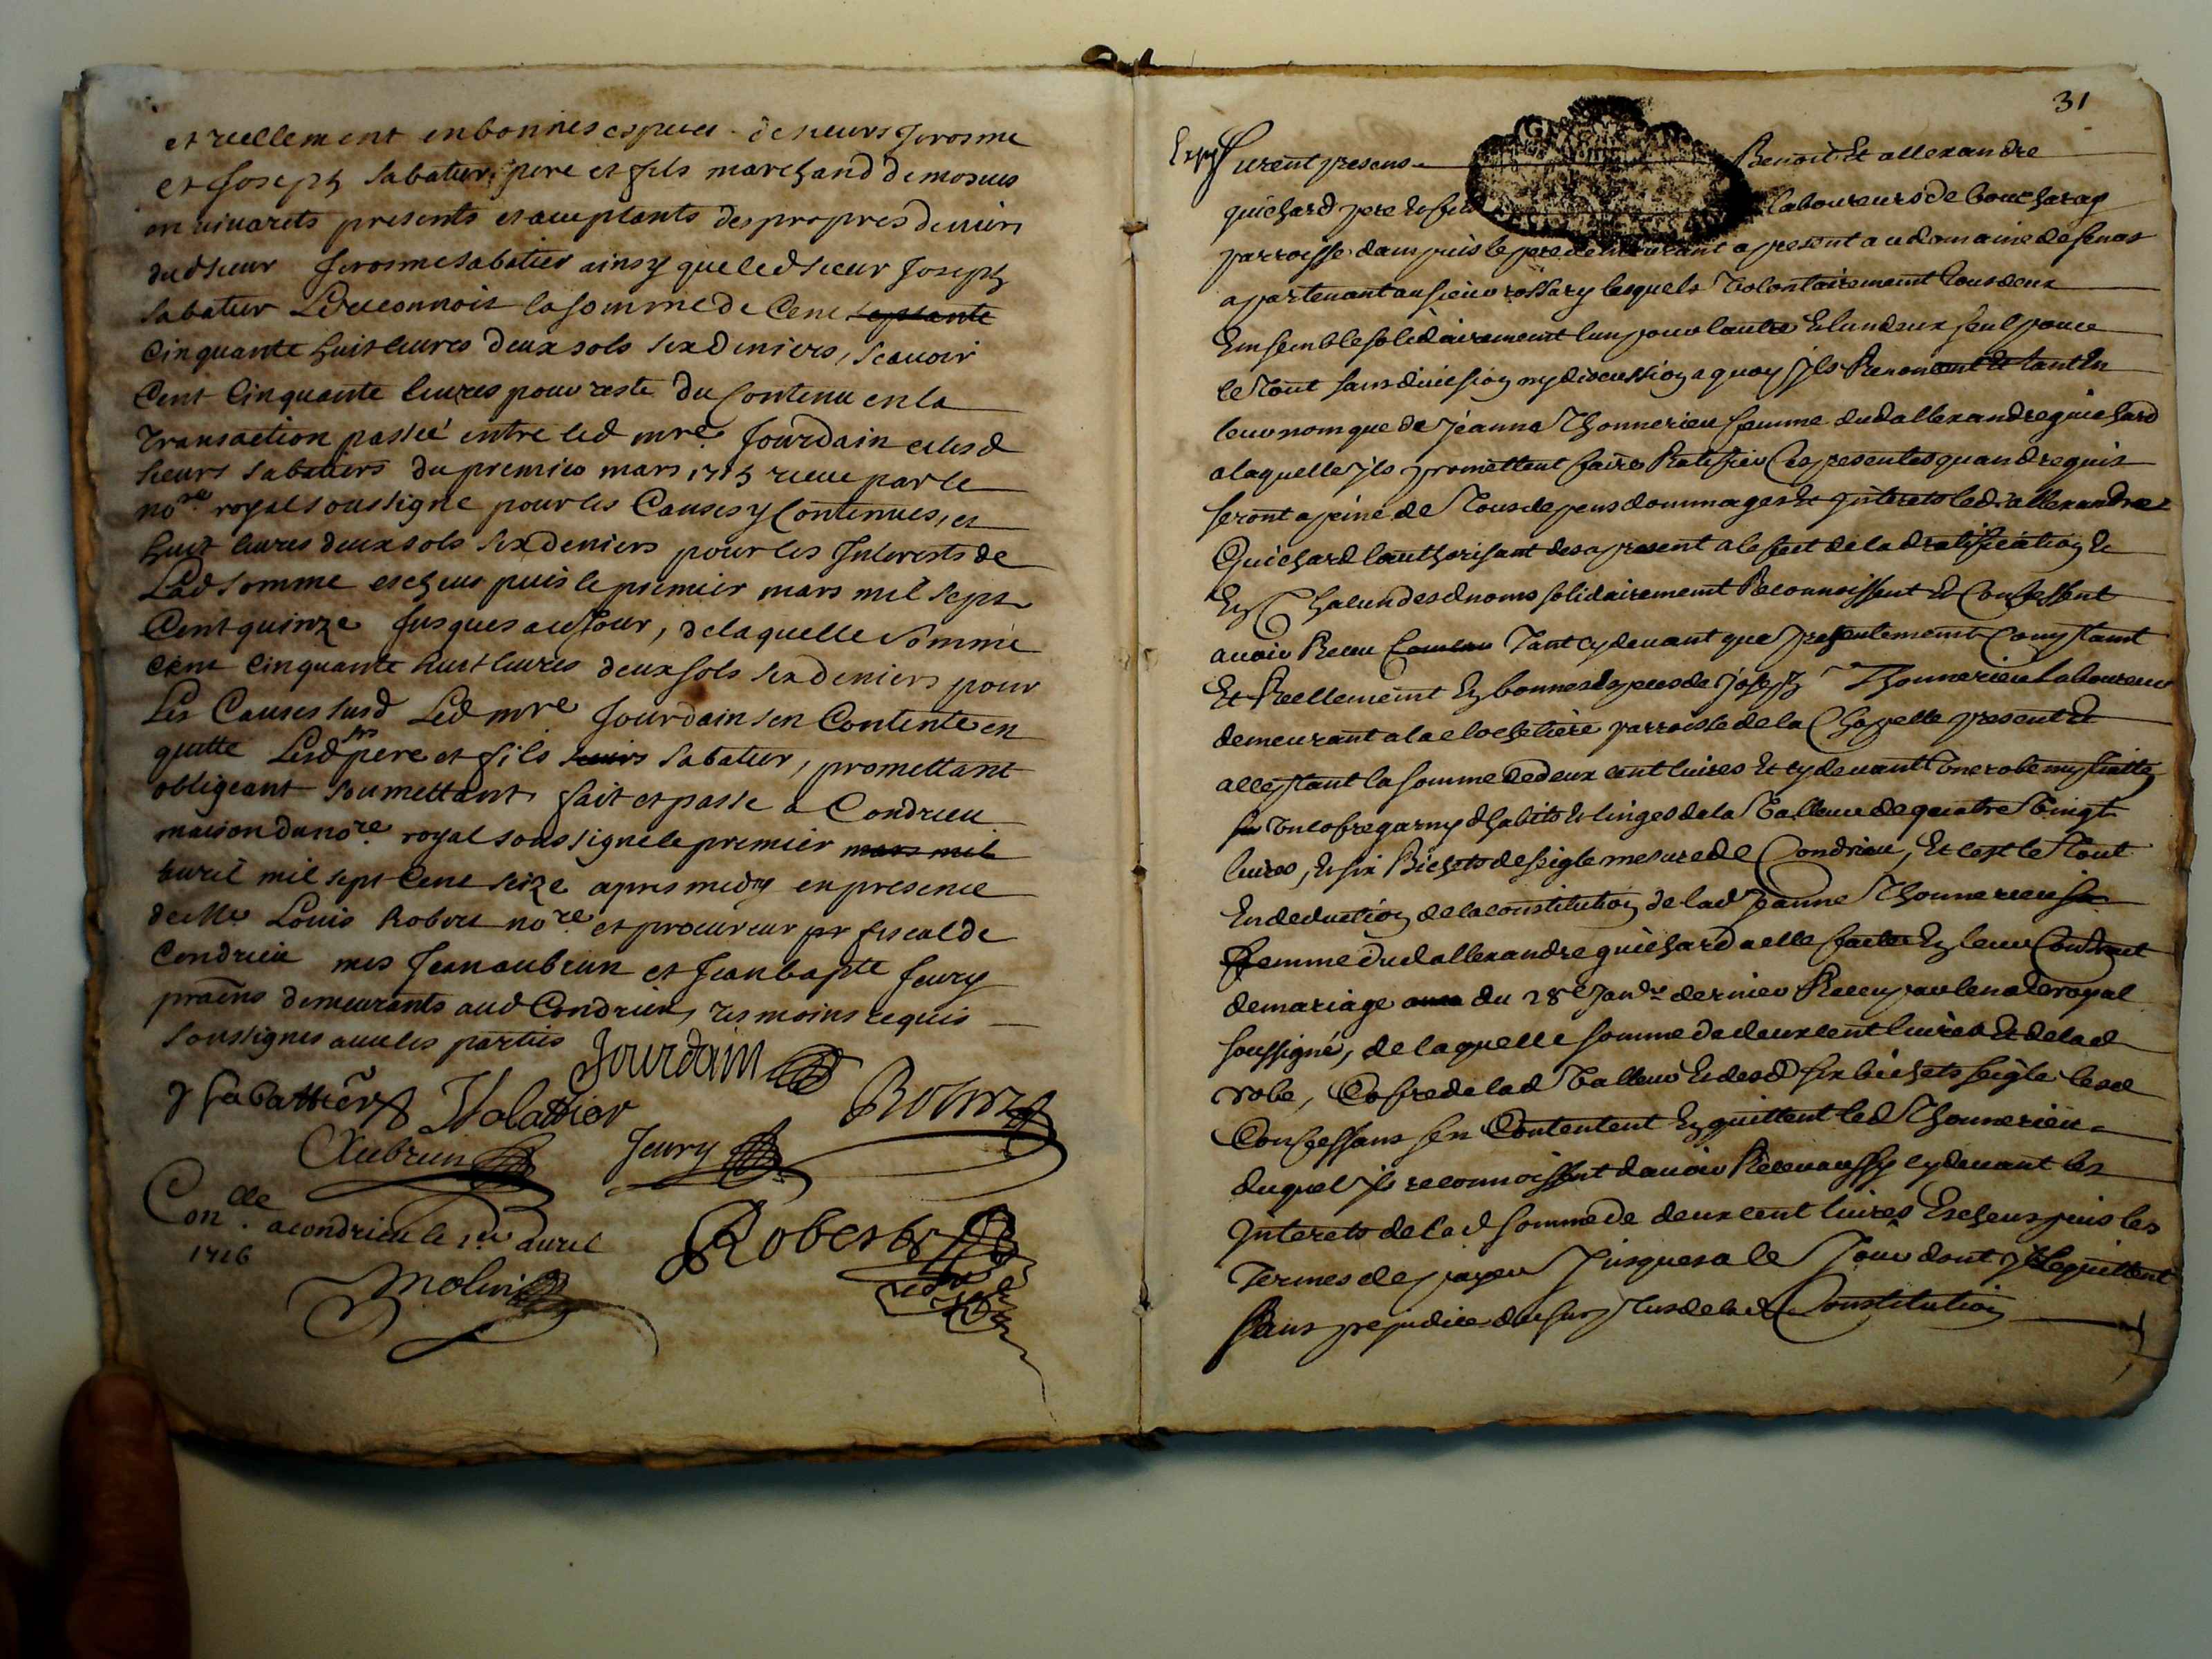 et reellement en bonnes especes de sieurs Jerosme
et Joseph Sabatier pere et fils marchand de
en vivarets presents et acceptants des propres deniers
dud sieur Jerosme Sabatier ainsy que led sieur Joseph
Sabatier Le reconnoit la somme de Cent septante
Cinquante huit livres deux sols six deniers, scavoir
Cent Cinquante livres pour reste du Contenu en la
Transaction passée entre led mre Jourdain et lesd
sieurs Sabatiers du premier mars 1715 receue par le
nore royal soussigné pour les Causes y Contenues, et
huit livres deux sols six deniers pour les Interests de
Lad somme escheus puis le premier mars mil sept
Cent quinze Jusques au Jour, de laquelle somme
Cent Cinquante huit livres deux sols six deniers pour
Les Causes susd Led mre Jourdain sen Contente en
quitte Lesd srs pere et fils sieurs Sabatier, promettant
obligeant soumettant fait et passé a Condrieu
maison du nore royal soussigné le premier mars mil
avril mil sept Cent seize apres midy en presence
de Me Louis Robert nore et procureur fiscal de
Condrieu mes Jean aubrun et Jean bapte Jeury
demeurants aud Condrieu, tesmoins requis
soussignes avec les parties
Jourdain
J Sabattier
Aubrun Jeury
Con.lle a Condrieu le 1er avril
1716
31
Furent presens Benoit Et allexandre
guichard pere et fils laboureurs de boucharay
parroisse dampuis le pere demeurant a present au domaine de
apartenant au sieur lesquels Volontairement tous deux
Ensemble solidairement lun pour lautre Et lun deux seul pour
le Tout sans division ny discussion a quoy Ils Renoncent Et tant En
leur nom que de Jeanne Thonnerieu femme dud allexandre guichard
a laquelle Ils promettent faire Ratifier Ces presentes quand requis
seront a peine de Tous depens dommages Et Interets led allexandre
Guichard lauthorisant des a present a leffect de lad ratification Et
En Chacun desd noms solidairement Reconnoissent Et Confessent
avoir Receu Tant cy devant que presentement Comptant
Et Reellement En bonnes Especes de Joseph Thonnerieu laboureur
demeurant a la parroisse de la Chapelle present Et
acceptant la somme de deux cent livres Et cy devant Une robe
Un cofre garny dhabits Et linges de la Valleur de quatre Vingt
livres, Et six Bichets de seigle mesure de Condrieu, Et cest le Tout
En deduction de la constitution de lad Jeanne Thonnerieu
femme dud allexandre guichard a elle faitte En leur Contract
de mariage du 28e Janvr dernier Receu par le nore royal
soussigné, de laquelle somme de deux cent livres Et de lad
robe, Cofre de lad Valleur Et desd six bichets seigle lesd
Confessans sen Contentent En quittent led Thonnerieu
duquel Ils reconnoissent davoir Receu aussy cy devant les
Interets de lad somme de deux cent livres Escheus puis les
Termes de payer Jusques a le Jour dont Ils le quittent
sans prejudice du surplus de lad Constitution